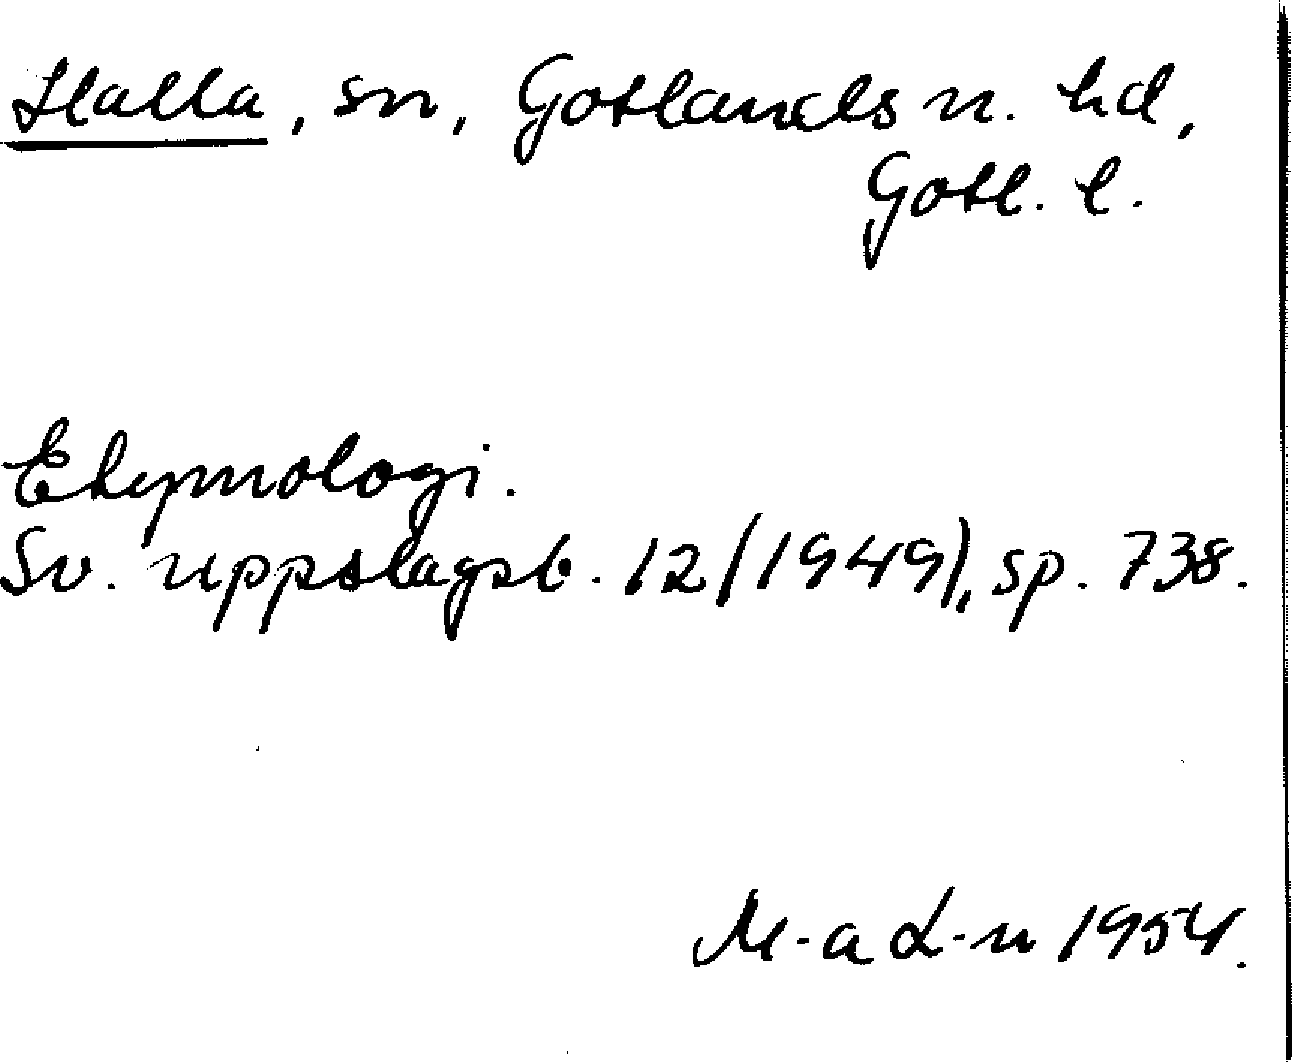 Halla, sn, Gotlands n. hd,
Gotl. l.
Etymologi.
Sv. uppslagsb. 12 (1949), sp. 738.
M-a L-n 1954.